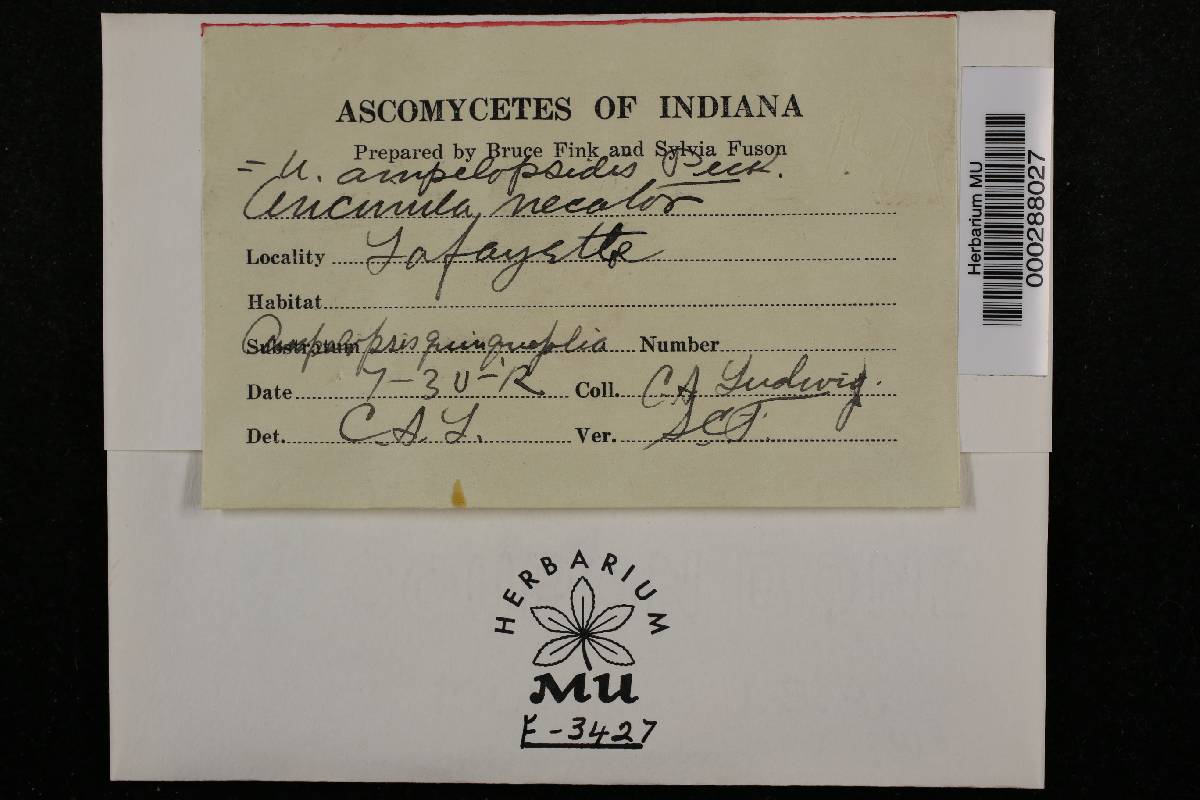 ASCOMYCETES OF INDIANA
Prepared by Bruce Fink and Sylvia Fuson
= U. ampelopsidis Peck.
Uncinula necator
Locality Lafayette
Habitat
Substratum Ampelopsis quinquefolia Number
Date 7-30-12 Coll. CA Ludwig.
Det. C A L. Ver. SCF.
Herbarium MU
000288027
HERBARIUM
MU
F-3427